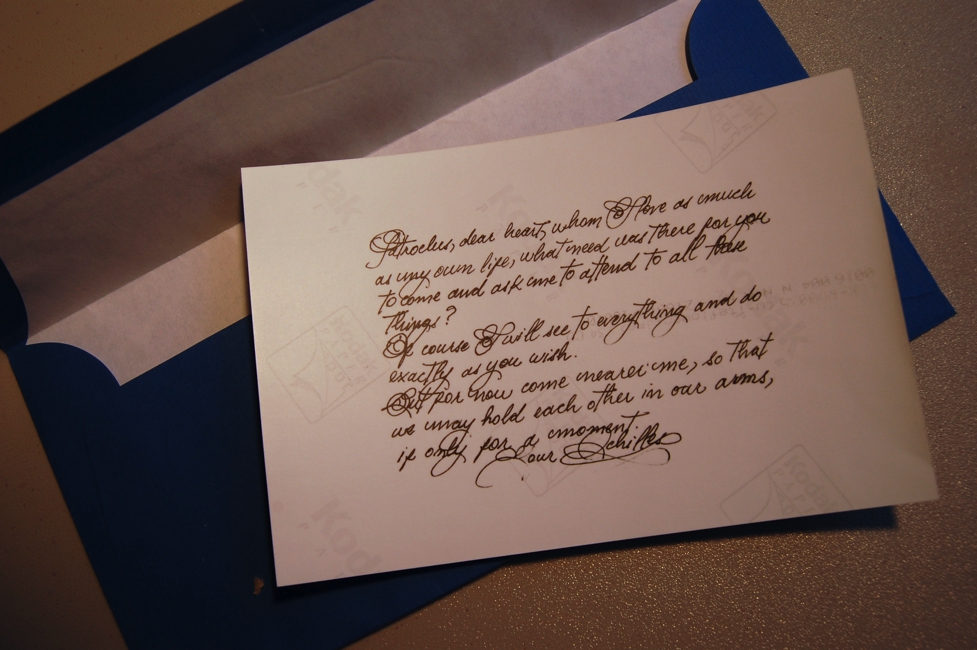 Patroclus, dear heart, whom I love as much
as my own life, what need was there for you
to come and ask me to attend to all these
things?
Of course I will see to everything and do
exactly as you wish.
But for now come nearer me, so that
we may hold each other in our arms,
if only for a moment.
Your Achilles
Kodak
Kodak
Kodak
Kodak
Kodak
Kodak